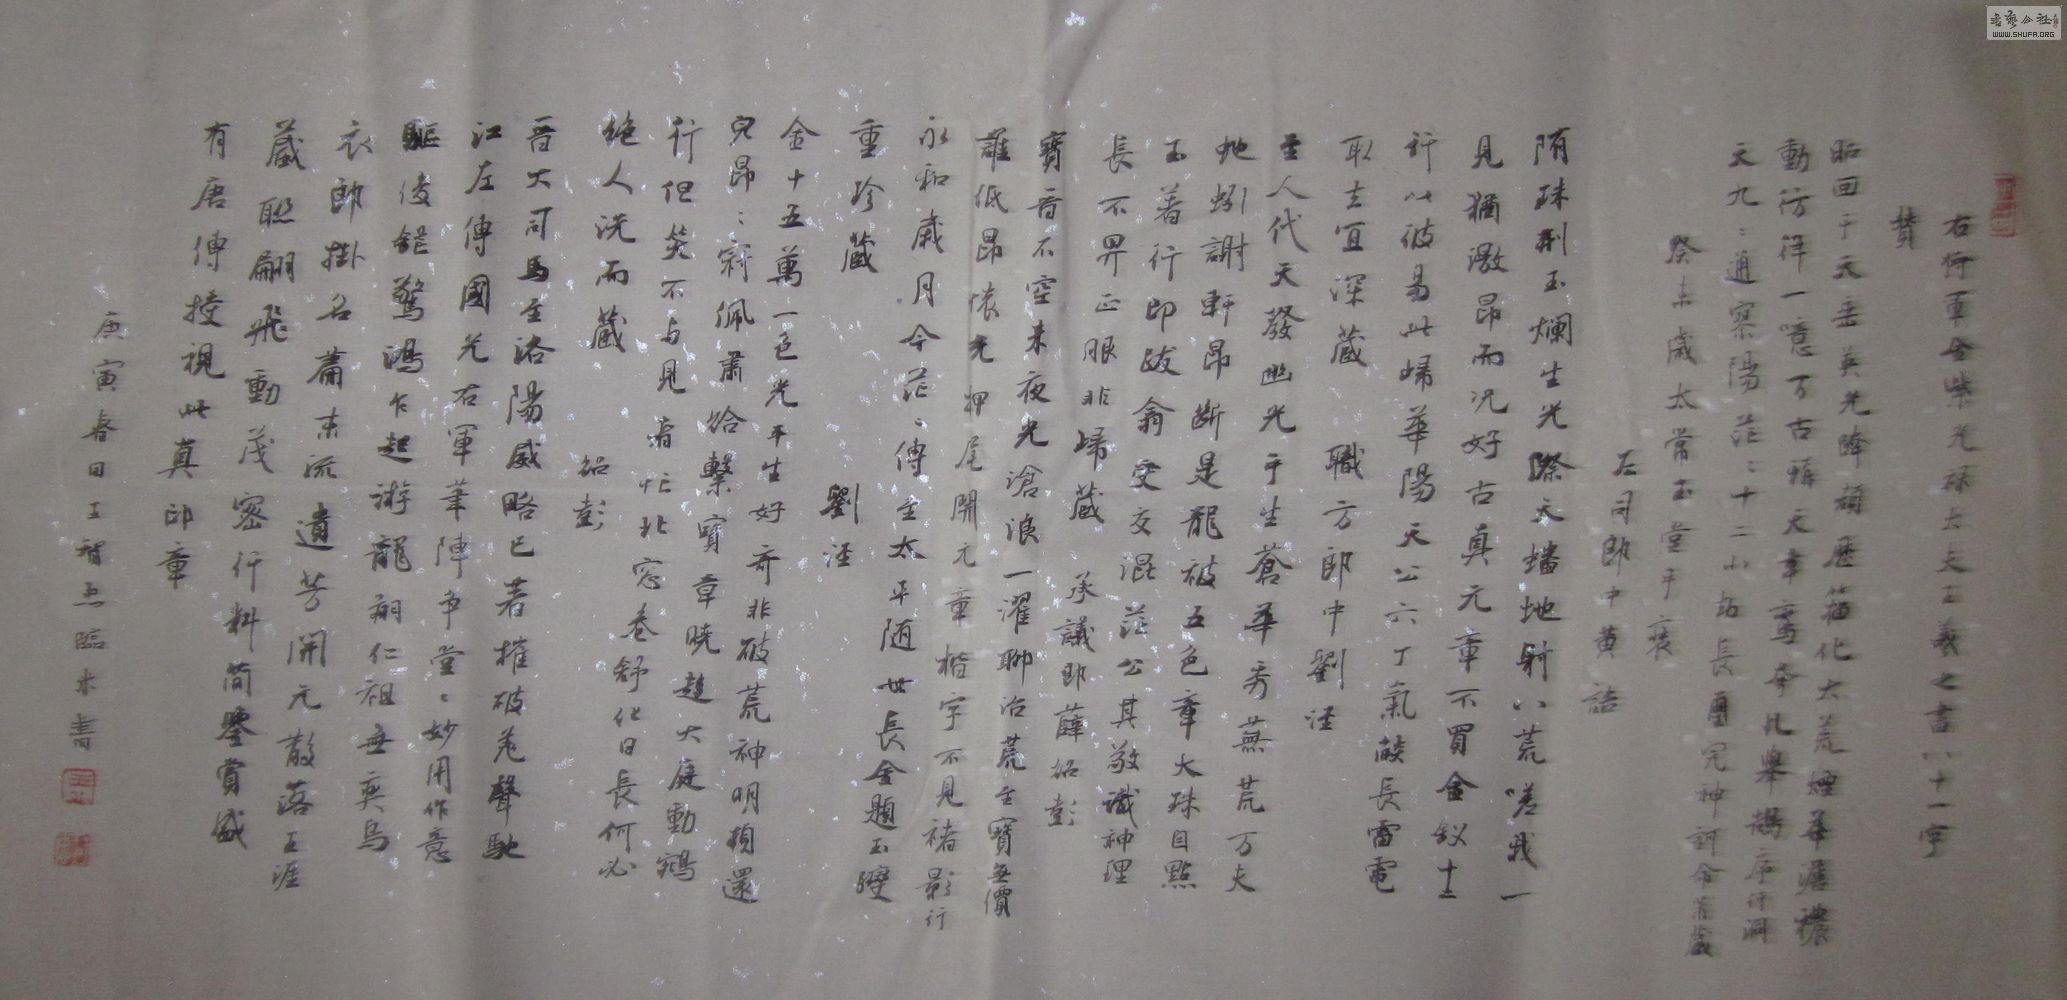 右行軍金紫光祿大夫王羲之書八十一字
贊
昭回于天垂英光跨頡歷籀化大荒煙華澹穠
動彷徉一噫萬古稱天章鸞夸虬舉鵠序行洞
天九〻通寥陽茫〻十二小劫長璽完神訶命蓋藏
癸未歲太常玉堂手裝
右司郎中黃誥
隋珠荆玉爛生光際天蟠地射八荒嗟我一
見猶激昂而况好古真元章不買金釵十二
行以彼易此歸華陽天公六丁氣燄長雷電
取去宜深藏 職方郎中劉涇
至人代天發幽光于生蒼華秀蕪荒万夫
地蚓謝軒昂斷是龍被五色章大珠自點
玉著行印跋翕受交混茫公其敬識神理
長不畀正眼非歸藏 承議郎薛紹彭
寶晉不空未夜光滄浪一濯聊治荒至寶無價
誰低昂懷充押尾開元章楷字不見褚影行
永和歲月今茫〻傳至太平隨世長金題玉躞
重珍藏 劉涇
金十五萬一色光平生好奇非破荒神明頓還
兒昂〻窈佩肅給繫寶章曉趨大庭動鵷
行但笑不与見者忙北窓卷舒化日長何必
絶人洗而藏 紹彭
晋大司馬至洛陽威略已著摧破羌聲馳
江左傳國光右軍筆陣争堂〻妙用作意
驅俊鋩驚鴻乍起游龍翔仁祖無奕烏
衣郎掛名蕭束流遺芳開元散落王涯
藏聯翩飛動茂密行料簡鑒賞盛
有唐傳授視此真印章
庚寅春日王智忠臨米書
書藝公社
WWW.SHUFA.ORG